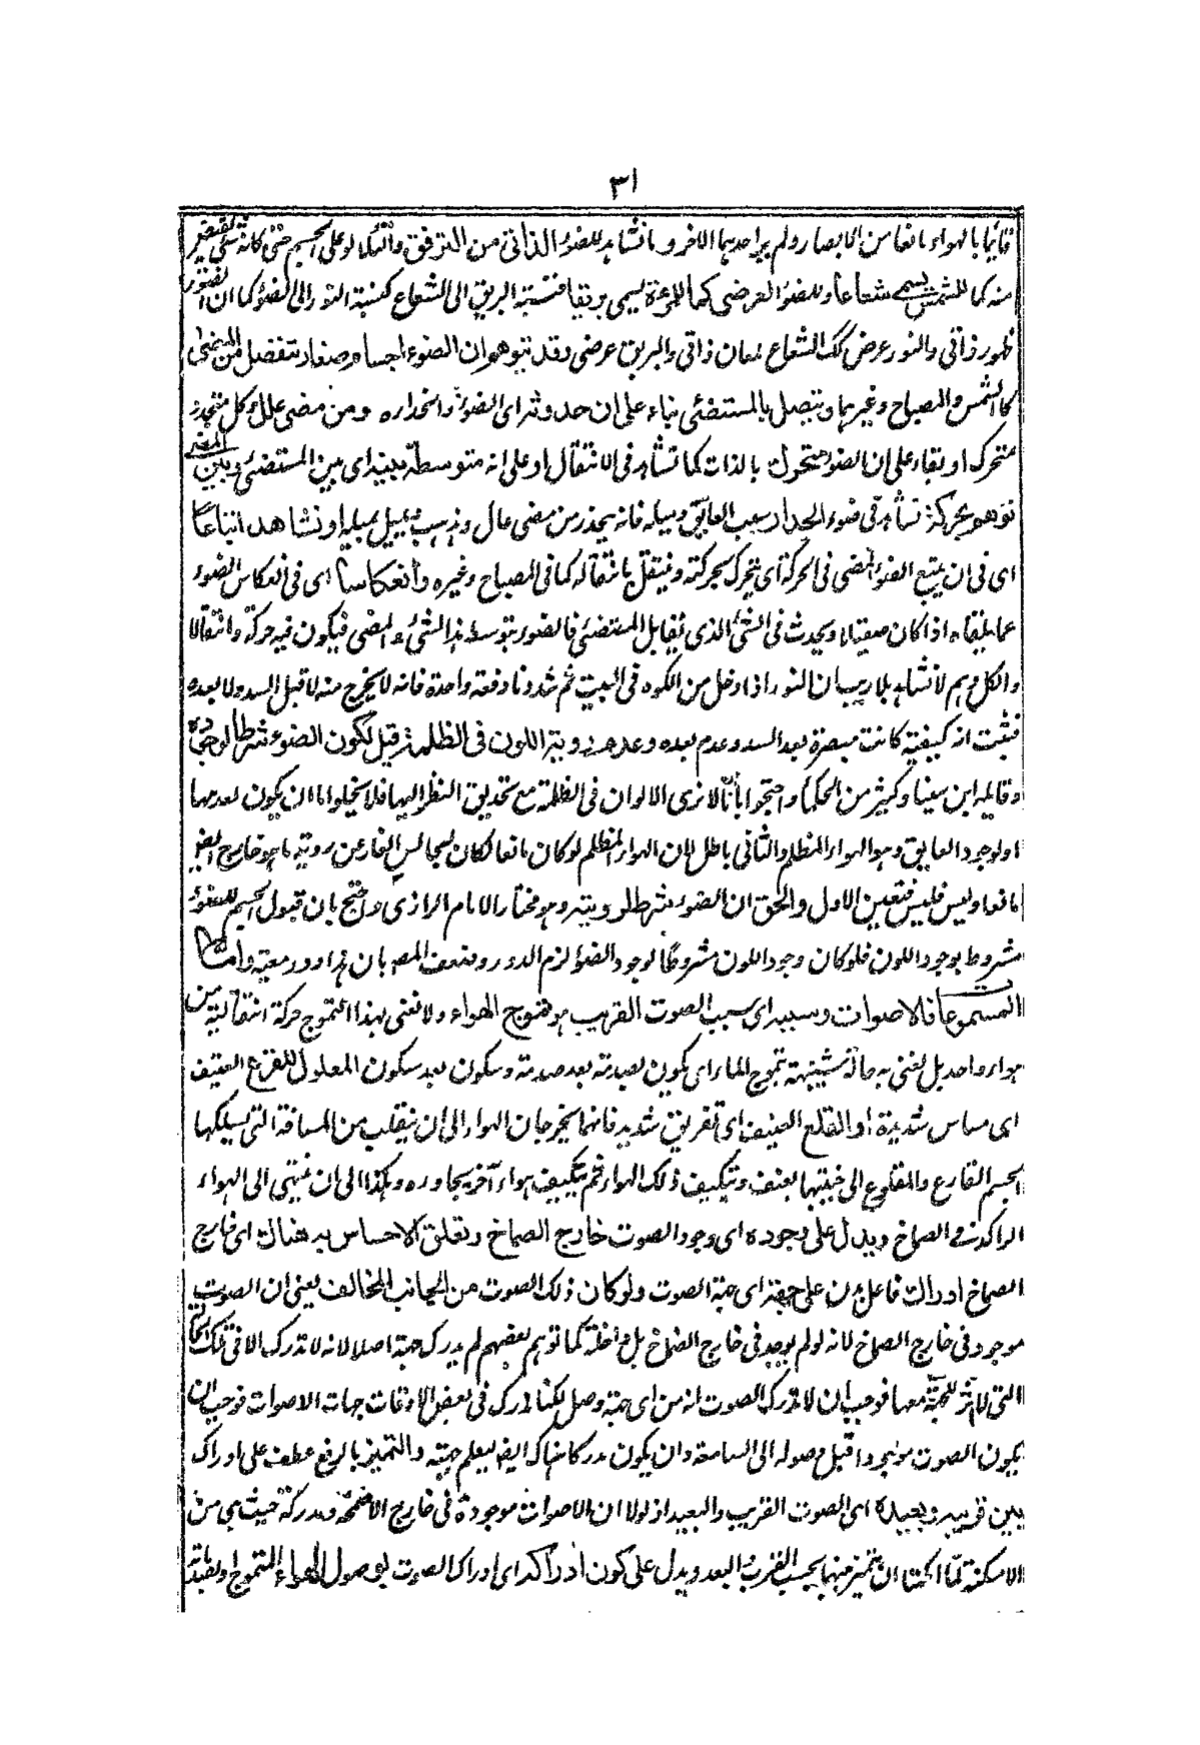 ٣١
قائما بالهواء مانعا من الابصار ولم ير احدهما الاخر وما نشاهد للضوء الذاتى من الترقرق والتلألؤ على الجسم حتى كانه شئ يفيض
منه كما للشمس يسمى شعاعا وللضوء العرضى كما للمرءة يسمى بريقا فنسبة البريق الى الشعاع كنسبة النور الى الضوء كما ان الضوء
ظهور ذاتى والنور عرضى كك الشعاع لمعان ذاتى والبريق عرضى وقد يتوهم ان الضوء اجسام صغار تنفصل من المضئ
كالشمس والمصباح وغيرهما وتتصل بالمستضئ بناء على ان حدوثه اى الضوء وانحداره ومن مضئ عال وكل منحدر
متحرك او بقاء على ان الضوء متحرك بالذات كما تشاهد فى الانتقال او على انه متوسط بينه اى بين المستضئ وبين المضئ
توهم حركة تشاهد فى ضوء الجدار بسبب العائق وميله فانه ينحدر من مضئ عال وذهب يميل بميله او نشاهد اتباعا
اى فى ان يتبع الضوء المضئ فى الحركة اى يتحرك بحركته وينتقل بانتقاله كما فى المصباح وغيره وانعكاسا اى فى انعكاس الضوء
عما يلقاه اذا كان صقيلا ويحدث فى الشئ الذى يقابل المستضئ فالضوء بتوسط هذا الشئ والمضئ فيكون فيه حركة وانتقالا
والكل وهم لا نشاهد بلا ريب ان النور اذا دخل من الكوه فى البيت ثم سددنا دفعة واحدة فانه لا يخرج منه لا قبل السد ولا بعده
فثبت انه كيفية كانت مبصرة بعد السد وعدم بعده وعدم رؤية اللون فى الظلمة قيل لكون الضوء شرطا لوجوده
وقايله ابن سينا وكثير من الحكماء واحتجوا بانا لا نرى الالوان فى الظلمة مع تحديق النظر اليها فلا يخلوا اما ان يكون لعدمها
او لوجود العايق وهو الهواء المظلم والثانى باطل لان الهواء المظلم لو كان مانعا لكان لجالس الغار عن رؤية ما هو خارج الغار
مانعا وليس فليس فتعين الاول والحق ان الضوء شرط لرويته وهو مختار الامام الرازى واحتج بان قبول الجسم للضوء
مشروط بوجود اللون فلو كان وجود اللون مشروطا لوجود الضوء لزم الدور وضعف المص بان هذا دور معية واما
المسموعات فالاصوات وسببه اى سبب الصوت القريب هو تموج الهواء ولا نعنى بهذا التموج حركة انتقالية من
هواء واحد بل نعنى به حالة شبيهة بتموج الماء اى يكون لصدمة بعد صدمة وسكون بعد سكون المعلول للقرع العنيف
اى مساس شديدة او القلع العنيف اى تفريق شديد فانهما يخرجان الهواء الى ان ينقلب من المسافة التى يسلكها
الجسم القارع والمقلوع الى جنبتيها بعنف وتكيف ذلك الهواء ثم يتكيف هواء آخر يجاوره وهكذا الى ان ينتهى الى الهواء
الراكد فى الصماخ ويدل على وجوده اى وجود الصوت خارج الصماخ وتعلق الاحساس به هناك اى خارج
الصماخ ادراك فاعل يدل على جهته اى جهة الصوت ولو كان ذلك الصوت من الجانب المخالف يعنى ان الصوت
موجود فى خارج الصماخ لانه لو لم يوجد فى خارج الصماخ بل فى داخله كما توهم بعضهم لم يدرك جهة اصلا لانه لا تدرك الا فى تلك الحالة
التى لا اثر للجهة معها فوجب ان لا تدرك الصوت انه من اى جهة وصل لكنا ندرك فى بعض الاوقات جهات الاصوات فوجب ان
يكون الصوت موجودا قبل وصوله الى السامعة وان يكون مدركا هناك ايضا ليعلم جهته والتميز بالرفع عطف على ادراك
بين قريبه وبعيده اى الصوت القريب والبعيد اذ لولا ان الاصوات موجودة فى خارج الاصمخة ومدركة حيث هى من
الامكنة لما امكننا ان نتميز بينها بحسب القرب والبعد ويدل على كون ادراكه اى ادراك الصوت بوصول الهواء المتموج